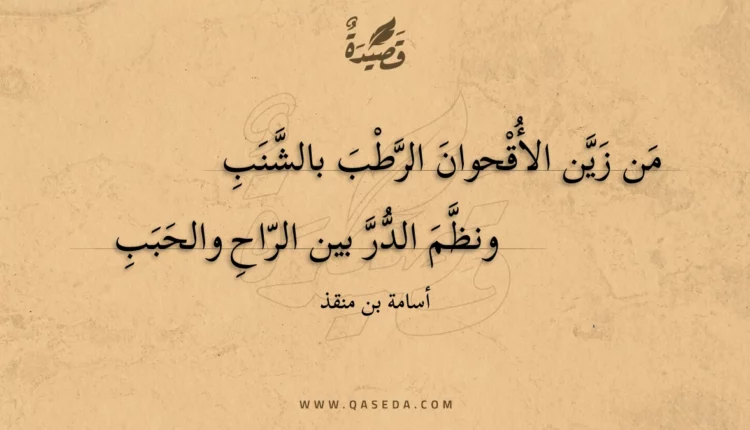 قَصِيْدَةٌ
مَن زَيَّن الأُقْحوانَ الرَّطْبَ بالشَّنَبِ
ونظَّمَ الدُّرَّ بين الرّاحِ والحَبَبِ
أسامة بن منقذ
WWW.QASEDA.COM